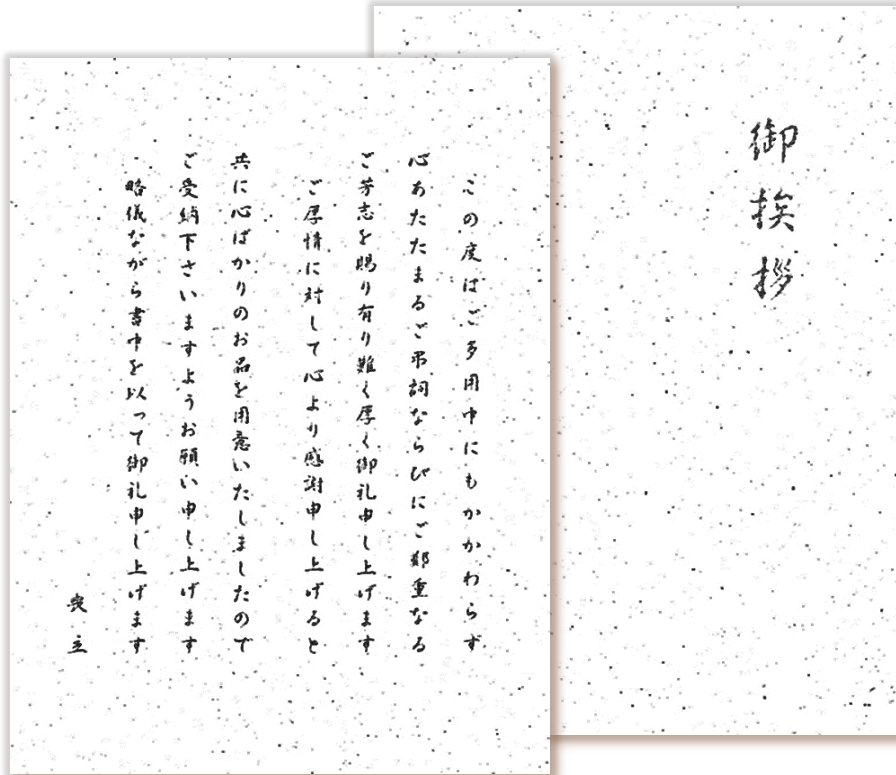 御挨拶
この度はご多用中にもかかわらず
心あたたまるご弔詞ならびにご鄭重なる
ご芳志を賜り有り難く厚く御礼申し上げます
ご厚情に対して心より感謝申し上げると
共に心ばかりのお品を用意いたしましたので
ご受納下さいますようお願い申し上げます
略儀ながら書中を以って御礼申し上げます
喪主